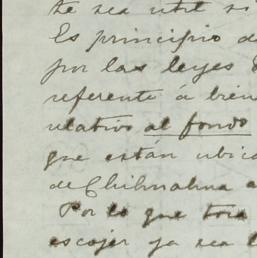 te sea util si
Es principio de
por las leyes
referente á bien
relativo al fondo
que están ubica
de Chihuahua a
Por lo que toca
escojer ya sea l